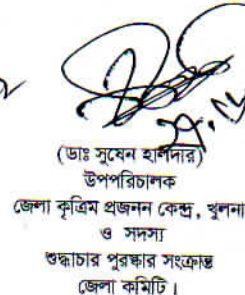 (ডাঃ সুষেন হালদার)
উপপরিচালক
জেলা কৃত্রিম প্রজনন কেন্দ্র, খুলনা
ও সদস্য
শুদ্ধাচার পুরষ্কার সংক্রান্ত
জেলা কমিটি।